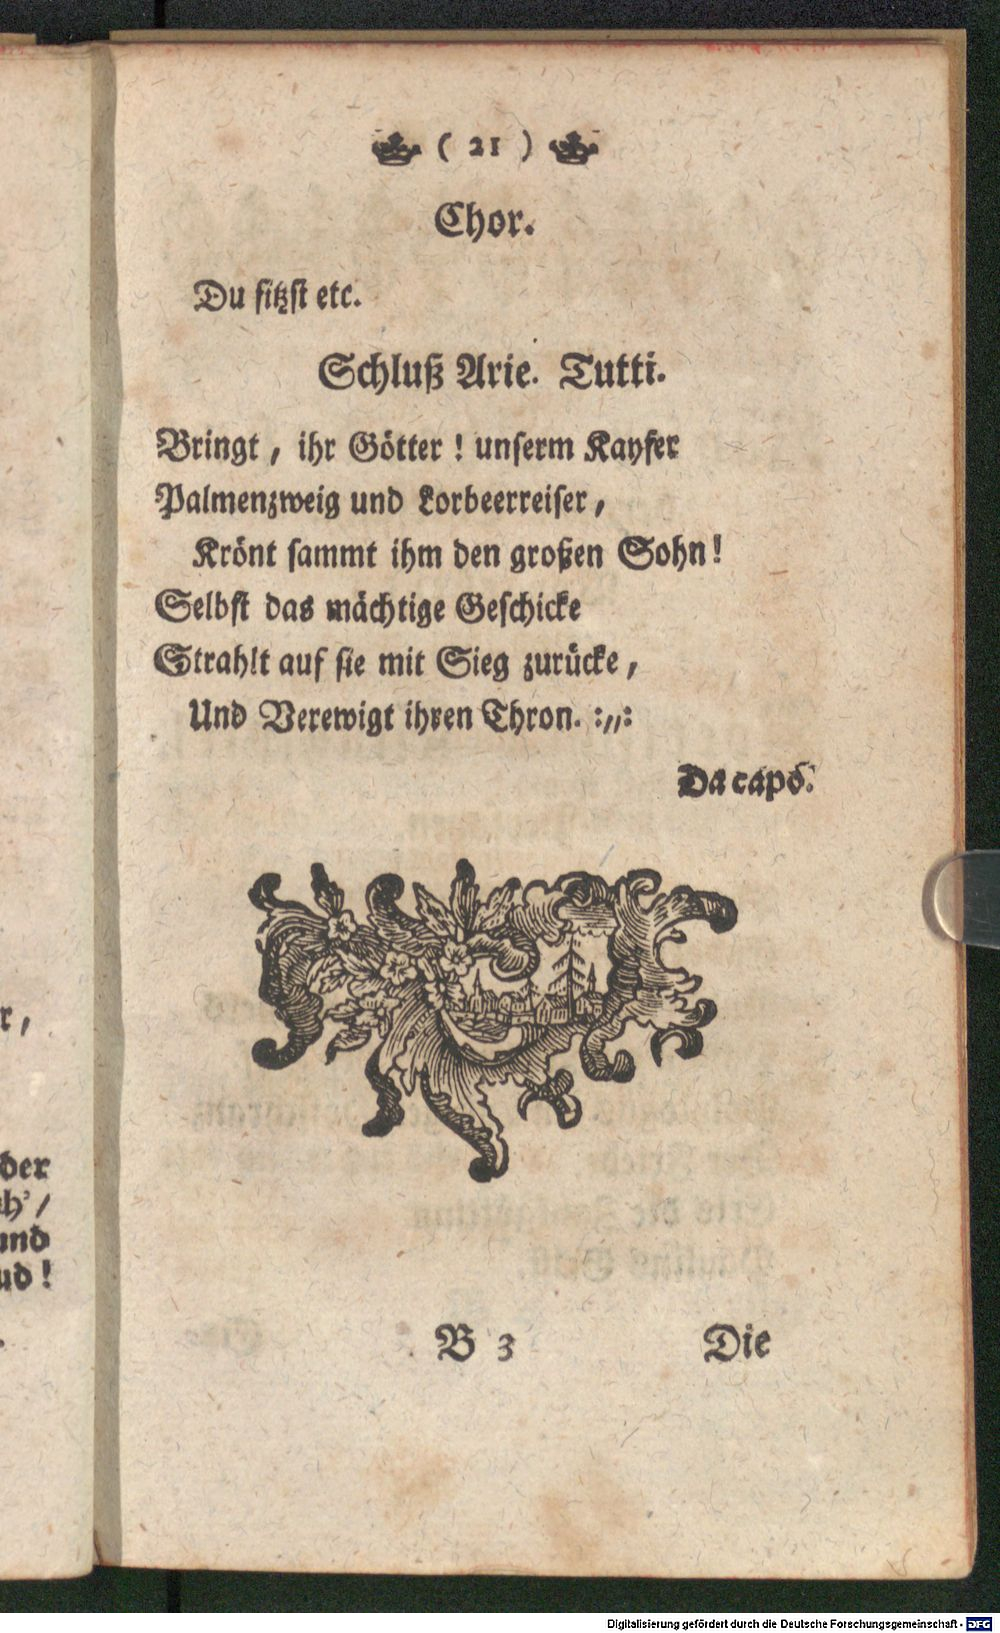 ( 21 )
Chor.
Du sitzst etc.
Schluß Arie. Tutti.
Bringt, ihr Götter! unserm Kayser
Palmenzweig und Lorbeerreiser,
Krönt sammt ihm den großen Sohn!
Selbst das mächtige Geschicke
Strahlt auf sie mit Sieg zurücke,
Und Verewigt ihren Thron. :,,:
Da capo.
B 3 Die
r,
der
und
ud!
Digitalisierung gefördert durch die Deutsche Forschungsgemeinschaft - DFG